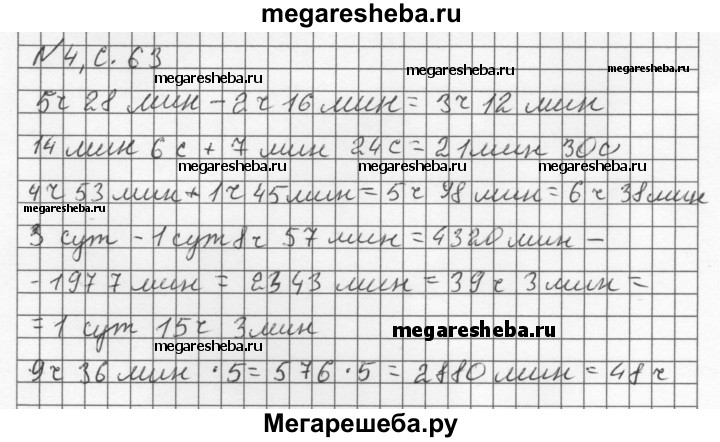 megaresheba.ru
N4, с. 63
megaresheba.ru megaresheba.ru megaresheba.ru
5ч 28 мин - 2ч 16 мин = 3ч 12 мин
14 мин 6 с + 7 мин 24с = 21 мин 30с
megaresheba.ru megaresheba.ru megaresheba.ru
4ч 53 мин + 1ч 45 мин = 5ч 98 мин = 6ч 38 мин
megaresheba.ru
3 сут - 1 сут 8ч 57 мин = 4320 мин -
- 1977 мин = 2343 мин = 39ч 3 мин =
= 1 сут 15ч 3 мин
megaresheba.ru
megaresheba.ru
9ч 36 мин · 5 = 576 · 5 = 2880 мин = 48 ч
Мегарешеба.ру